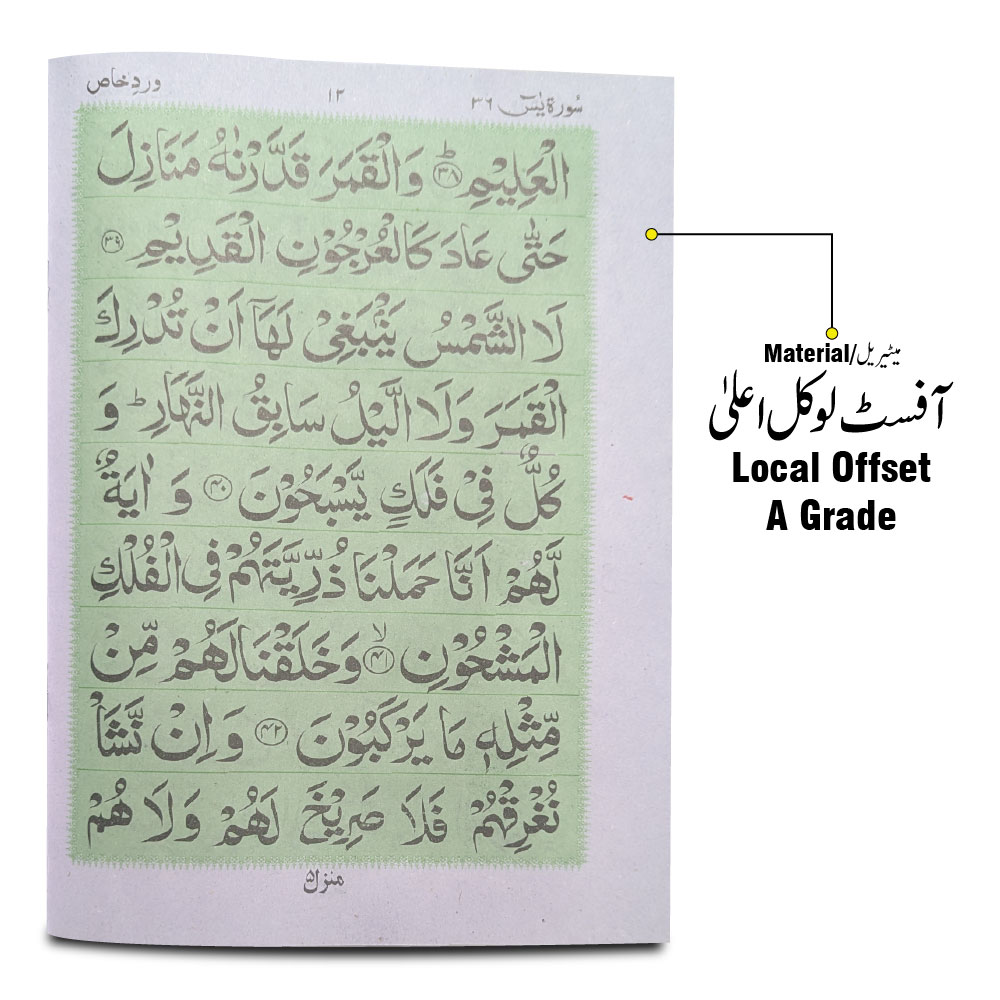 سُورة يٰسٓ ٣٦
١٢
وردِ خاص
الْعَلِيْمِ ﴿۳۸﴾ؕ وَالْقَمَرَ قَدَّرْنٰهُ مَنَازِلَ
حَتّٰى عَادَ كَالْعُرْجُوْنِ الْقَدِيْمِ ﴿۳۹﴾
لَا الشَّمْسُ يَنْۢبَغِيْ لَهَاۤ اَنْ تُدْرِكَ
الْقَمَرَ وَلَا الَّيْلُ سَابِقُ النَّهَارِؕ وَ
كُلٌّ فِيْ فَلَكٍ يَّسْبَحُوْنَ ﴿۴۰﴾ وَ اٰيَةٌ
لَّهُمْ اَنَّا حَمَلْنَا ذُرِّيَّتَهُمْ فِى الْفُلْكِ
الْمَشْحُوْنِ ﴿۴۱﴾ۙ وَخَلَقْنَا لَهُمْ مِّنْ
مِّثْلِهٖ مَا يَرْكَبُوْنَ ﴿۴۲﴾ وَ اِنْ نَّشَاْ
نُغْرِقْهُمْ فَلَا صَرِيْخَ لَهُمْ وَلَا هُمْ
منزل ۵
Material/میٹیریل
آفسٹ لوکل اعلیٰ
Local Offset
A Grade